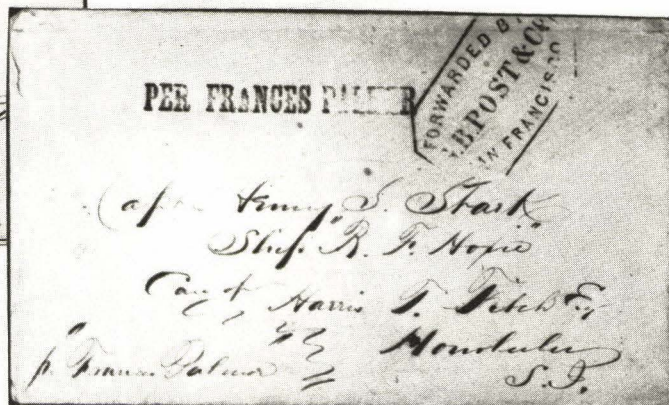 PER FRANCES PALMER
FORWARDED BY
.B.POST & CO
N FRANCISCO
Capt Henry S. Stark
Ship "R. F. Hoxie"
Care of Harris T. Fitch Esq
Honolulu
p. Frances Palmer
S.I.